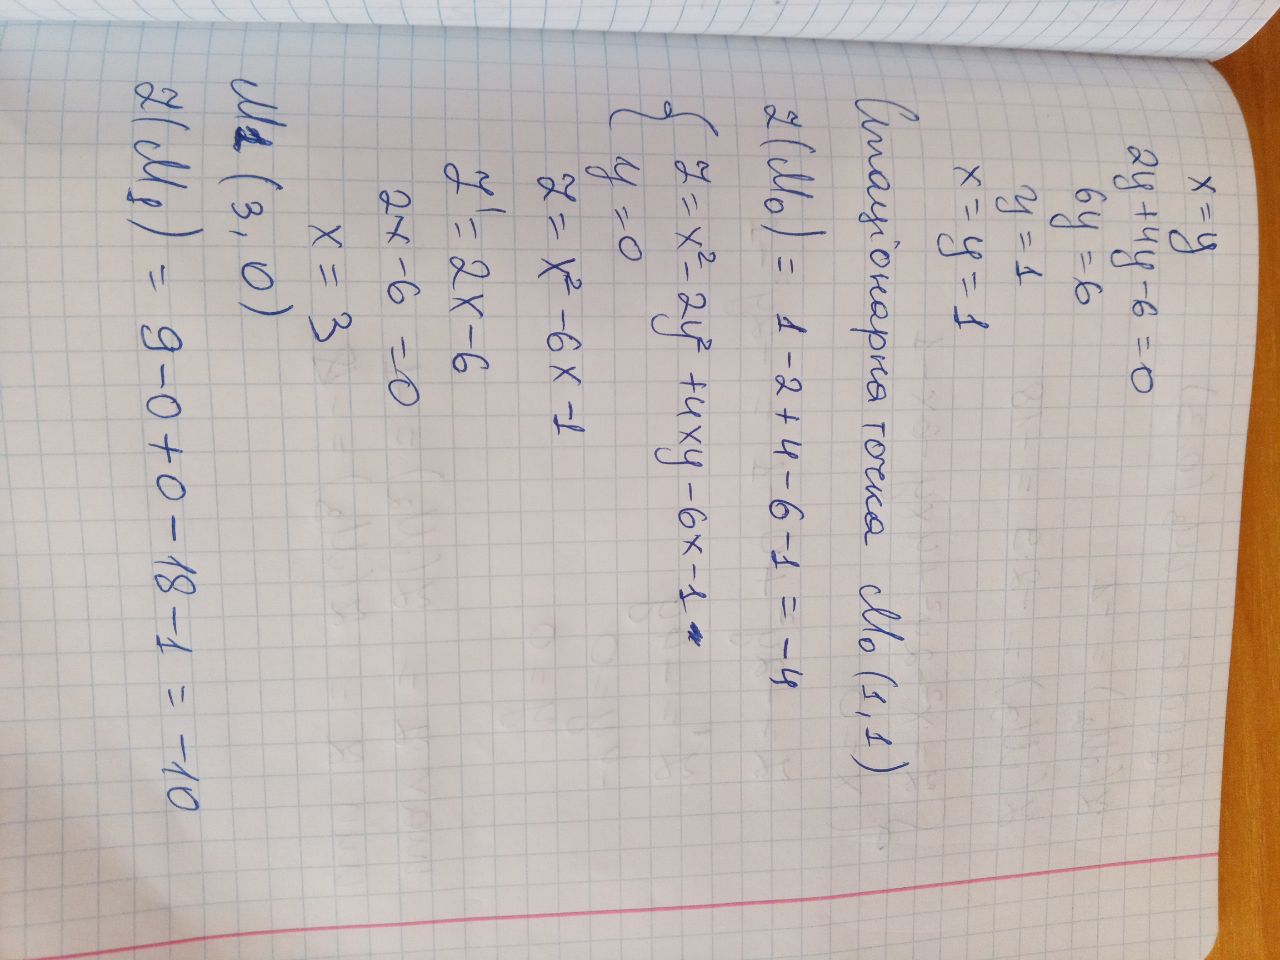 x = y
2y + 4y - 6 = 0
6y = 6
y = 1
x = y = 1
Стаціонарна точка M₀ (1, 1)
Z(M₀) = 1 - 2 + 4 - 6 - 1 = -4
{ Z = x² - 2y² + 4xy - 6x - 1
y = 0
Z = x² - 6x - 1
Z' = 2x - 6
2x - 6 = 0
x = 3
M1 (3, 0)
Z(M₁) = 9 - 0 + 0 - 18 - 1 = -10